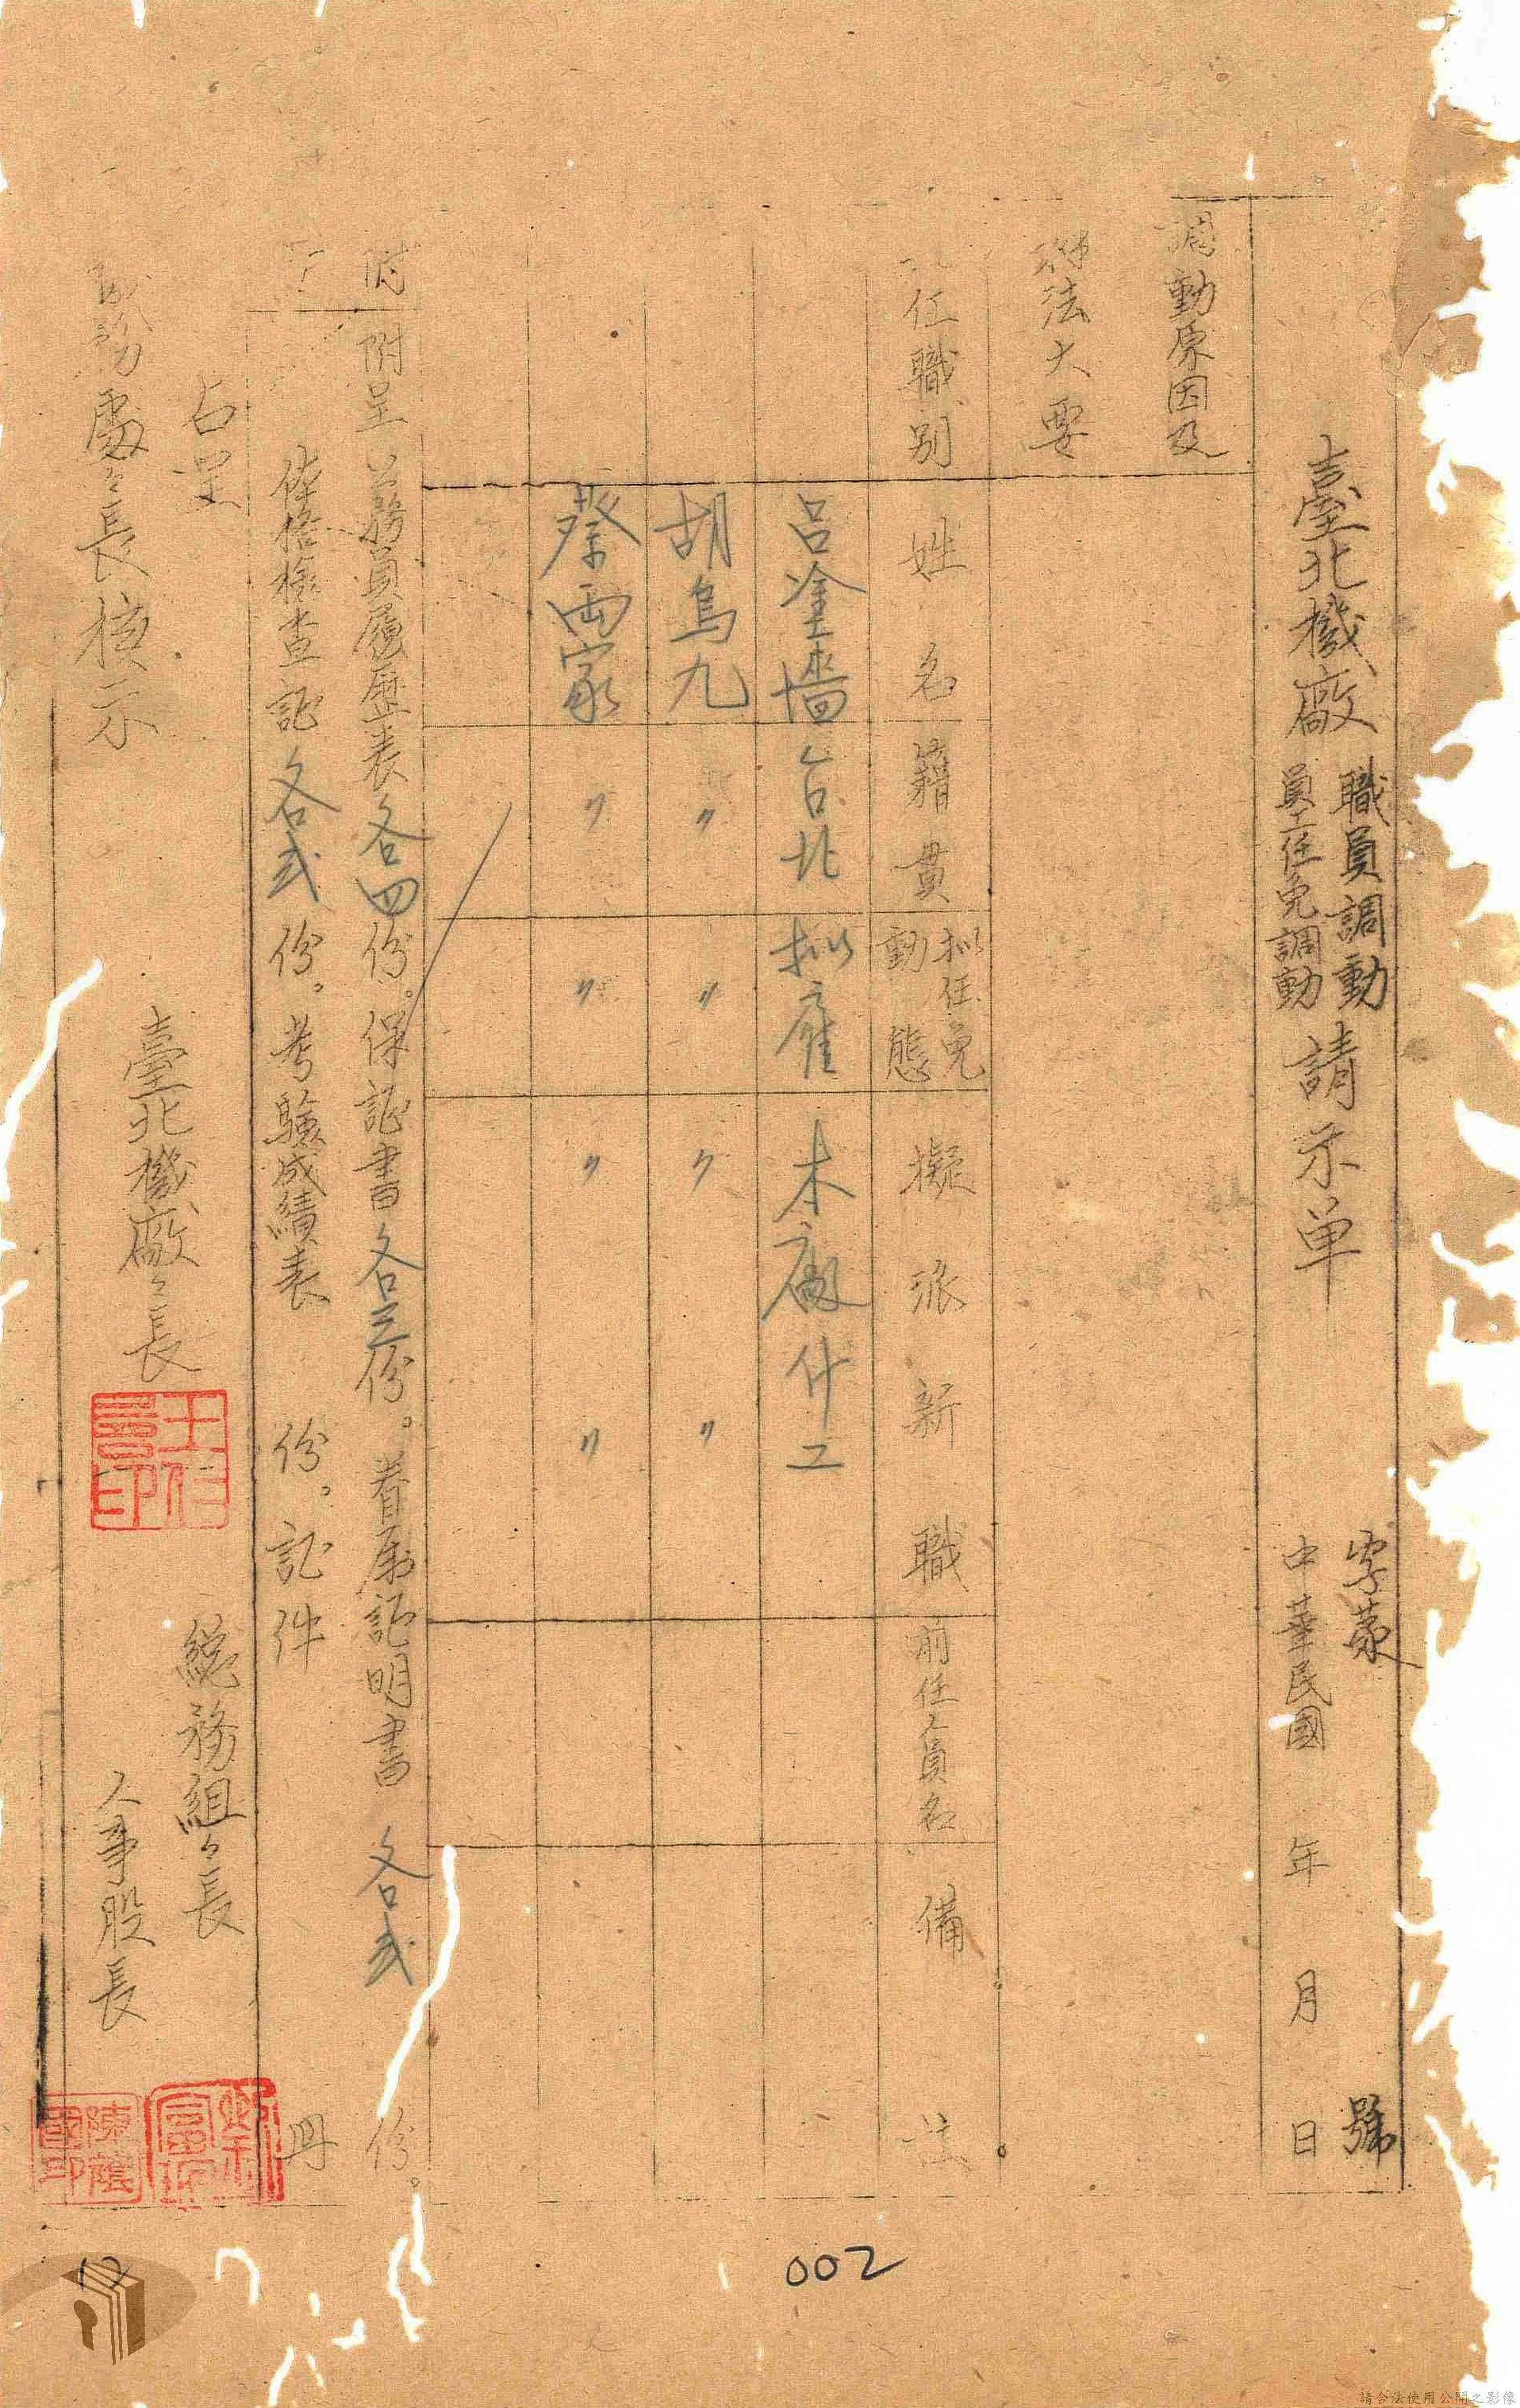 字第 號
臺北機廠 職員調動 員工任免調動 請示单
中華民國 年 月 日
調動原因及
辦法大要
任職別 姓名 籍貫 拟任免動態 擬派新職 前任人員名 備註
呂塗墻 台北 拟雇 本廠什工
胡烏九 〃 〃 〃 〃
蔡両家 〃 〃 〃 〃
附 附呈 公務員履歷表各四份。保証書各三份。眷屬証明書 各弍 份。
件 体格檢查証各弍份。考驗成績表 份。証件 冊
右呈
處々長核示
臺北機廠々長
總務組々長
人事股長
陳蔭國印
002
12
請合法使用公開之影像